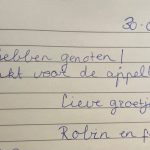 30-
hebben genoten!
voor de appelt
Lieve groetj
Robin en f